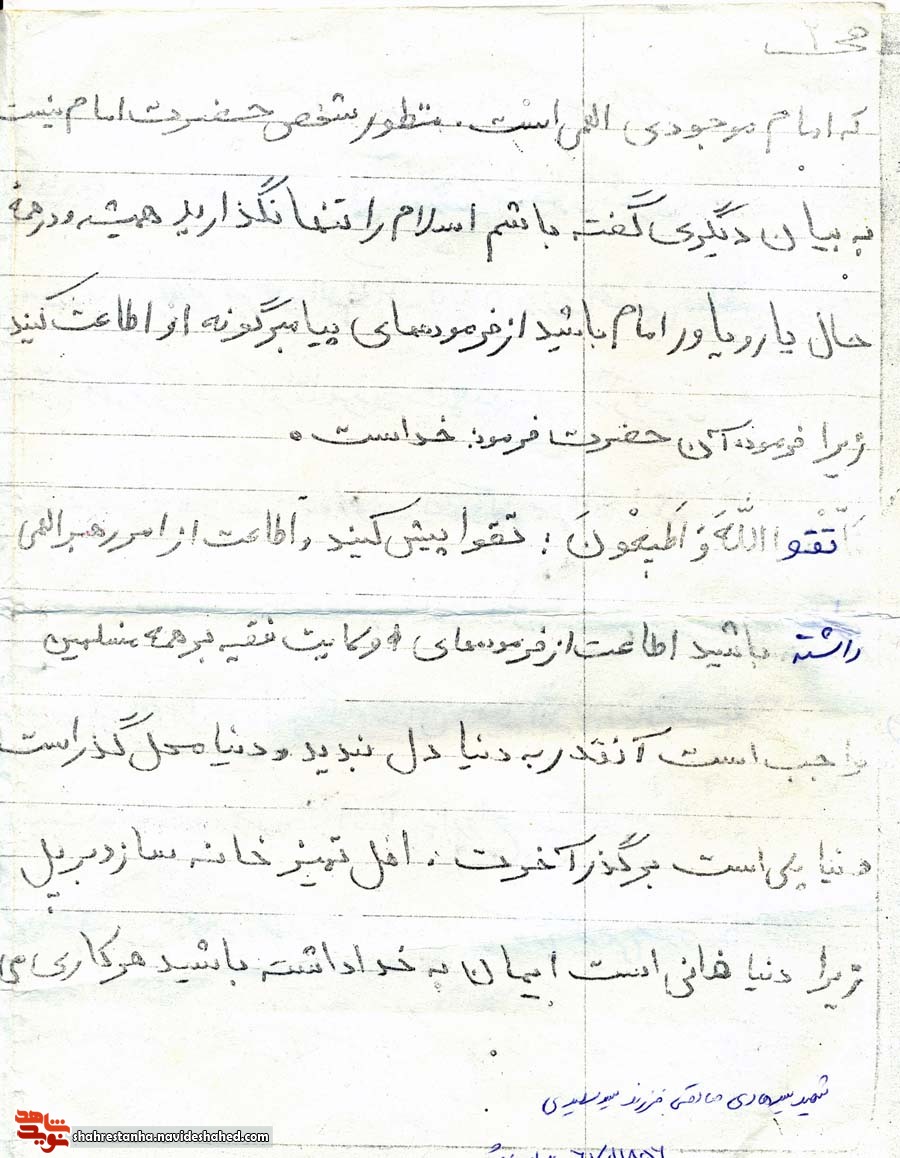 ص ۲
که امام موجودی الهی است. منظور شخص حضرت امام نیست
به بیان دیگری گفته باشم اسلام را تنها نگذارید همیشه و در همهٔ
حال یار و یاور امام باشید از فرموده‌های پیامبرگونه او اطاعت کنید
زیرا فرموده آن حضرت فرموده خداست.
اتَّقُوا اللَّهَ وَ اَطیعُونَ: تقوا پیش کنید و اطاعت از امر رهبر الهی
داشته باشید اطاعت از فرموده‌های ولایت فقیه بر همه مسلمین
واجب است آنقدر به دنیا دل نبدید و دنیا محل گذر است
دنیا پلی است بر گذر آخرت. اهل تمیز خانه سازد بر پل
زیرا دنیا فانی است ایمان به خدا داشته باشید هر کاری می
شهید سیدهادی صادقی فرزند
نوید شاهد
shahrestanha.navideshahed.com